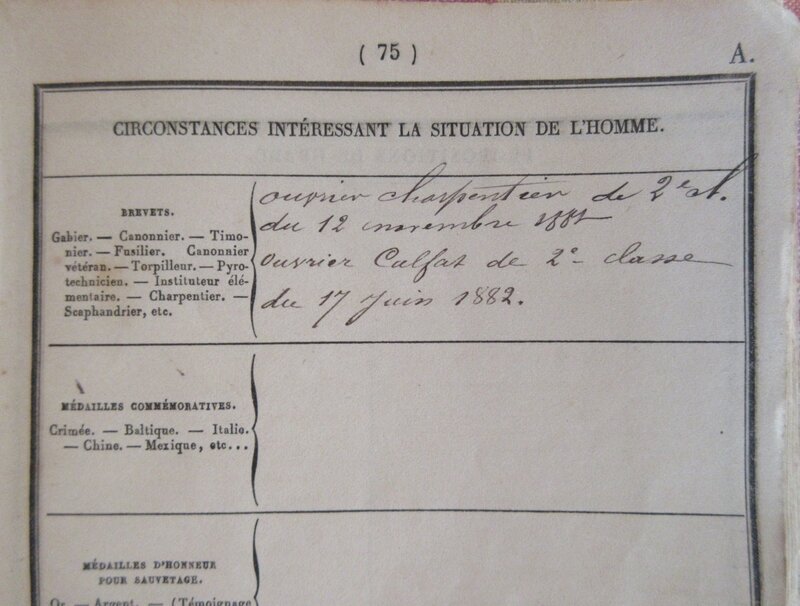 ( 75 )
A.
CIRCONSTANCES INTÉRESSANT LA SITUATION DE L'HOMME.
BREVETS.
Gabier. — Canonnier. — Timo-
nier. — Fusilier. Canonnier
vétéran. — Torpilleur. — Pyro-
technicien. — Instituteur élé-
mentaire. — Charpentier. —
Scaphandrier, etc.
ouvrier charpentier de 2e cl.
du 12 novembre 1881
Ouvrier Calfat de 2e classe
du 17 Juin 1882.
MÉDAILLES COMMÉMORATIVES.
Crimée. — Baltique. — Italie.
— Chine. — Mexique, etc...
MÉDAILLES D'HONNEUR
POUR SAUVETAGE.
Or. — Argent. — (Témoignage